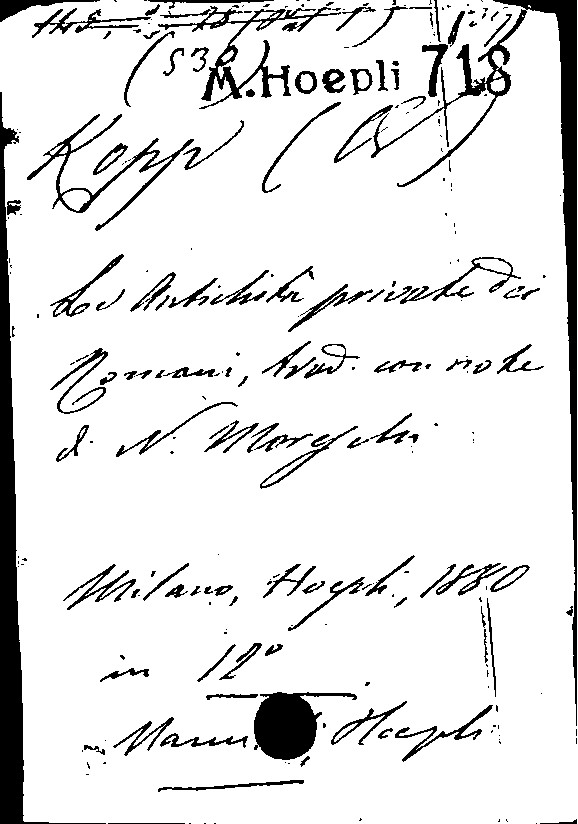 (530)
M. Hoepli 718
Kopp (W)
Le Antichità private dei
Romani, trad. con note
di N. Moreschi
Milano, Hoepli, 1880
in 12º
Hoepli